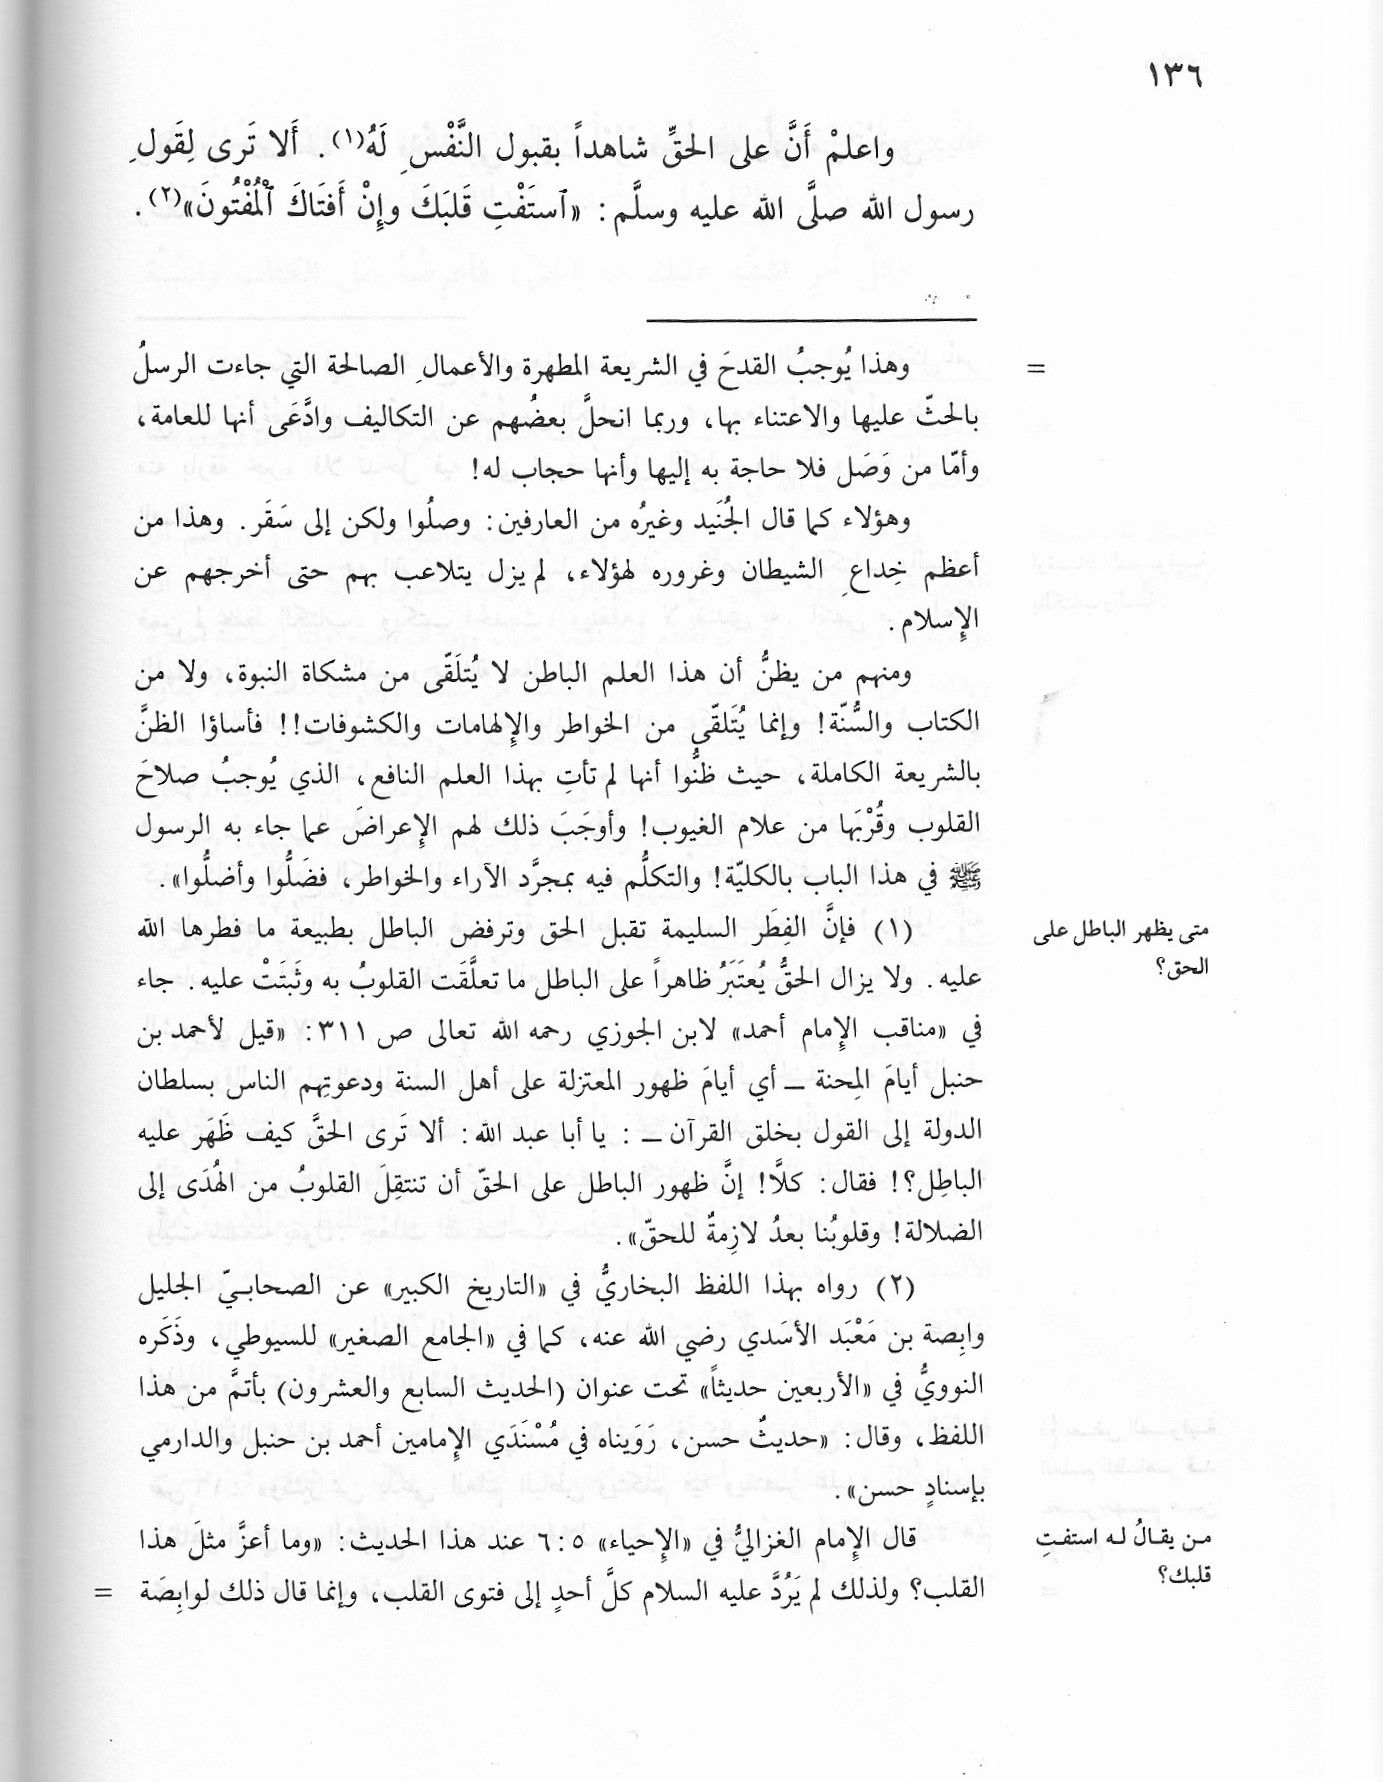 ١٣٦
واعلمْ أَنَّ على الحقِّ شاهداً بقبول النَّفْسِ لَهُ(١). أَلا تَرى لِقَولِ
رسول الله صلَّى الله عليه وسلَّم: «ٱستَفْتِ قَلبَكَ وإِنْ أَفتَاكَ ٱلْمُفْتُونَ»(٢).
= وهذا يُوجبُ القدحَ في الشريعة المطهرة والأعمالِ الصالحة التي جاءت الرسلُ
بالحثّ عليها والاعتناء بها، وربما انحلَّ بعضُهم عن التكاليف وادَّعَى أنها للعامة،
وأمّا من وَصَل فلا حاجة به إليها وأنها حجاب له!
وهؤلاء كما قال الجُنَيد وغيرُه من العارفين: وصلُوا ولكن إلى سَقَر. وهذا من
أعظم خِداعِ الشيطان وغروره لهؤلاء، لم يزل يتلاعب بهم حتى أخرجهم عن
الإسلام.
ومنهم من يظنُّ أن هذا العلم الباطن لا يُتلَقّى من مشكاة النبوة، ولا من
الكتاب والسُّنّة! وإنما يُتَلقّى من الخواطر والإلهامات والكشوفات!! فأساؤا الظنَّ
بالشريعة الكاملة، حيث ظنُّوا أنها لم تأتِ بهذا العلم النافع، الذي يُوجبُ صلاحَ
القلوب وقُرْبَها من علام الغيوب! وأوجَبَ ذلك لهم الإعراضَ عما جاء به الرسول
ﷺ في هذا الباب بالكليّة! والتكلُّم فيه بمجرَّد الآراء والخواطر، فضَلُّوا وأضلُّوا».
متى يظهر الباطل على
الحق؟
(١) فإنَّ الفِطَر السليمة تقبل الحق وترفض الباطل بطبيعة ما فطرها الله
عليه. ولا يزال الحقُّ يُعتَبَرُ ظاهراً على الباطل ما تعلَّقَت القلوبُ به وثَبتَتْ عليه. جاء
في «مناقب الإمام أحمد» لابن الجوزي رحمه الله تعالى ص ٣١١: «قيل لأحمد بن
حنبل أيامَ المِحنة ــ أي أيامَ ظهور المعتزلة على أهل السنة ودعوتِهم الناس بسلطان
الدولة إلى القول بخلق القرآن ــ: يا أبا عبد الله: ألا تَرى الحقَّ كيف ظَهَر عليه
الباطِل؟! فقال: كلَّا! إنَّ ظهور الباطل على الحقّ أن تنتقِلَ القلوبُ من الهُدَى إلى
الضلالة! وقلوبُنا بعدُ لازِمةٌ للحقّ».
(٢) رواه بهذا اللفظ البخاريُّ في «التاريخ الكبير» عن الصحابيّ الجليل
وابِصة بن مَعْبَد الأسَدي رضي الله عنه، كما في «الجامع الصغير» للسيوطي، وذَكَره
النوويُّ في «الأربعين حديثاً» تحت عنوان (الحديث السابع والعشرون) بأتمَّ من هذا
اللفظ، وقال: «حديثٌ حسن، رَوَيناه في مُسْنَدَي الإمامين أحمد بن حنبل والدارمي
بإسنادٍ حسن».
من يقالُ له استفتِ
قلبك؟
قال الإمام الغزاليُّ في «الإحياء» ٦:٥ عند هذا الحديث: «وما أعزَّ مثلَ هذا
القلب؟ ولذلك لم يَرُدَّ عليه السلام كلَّ أحدٍ إلى فتوى القلب، وإنما قال ذلك لوابِصَة =